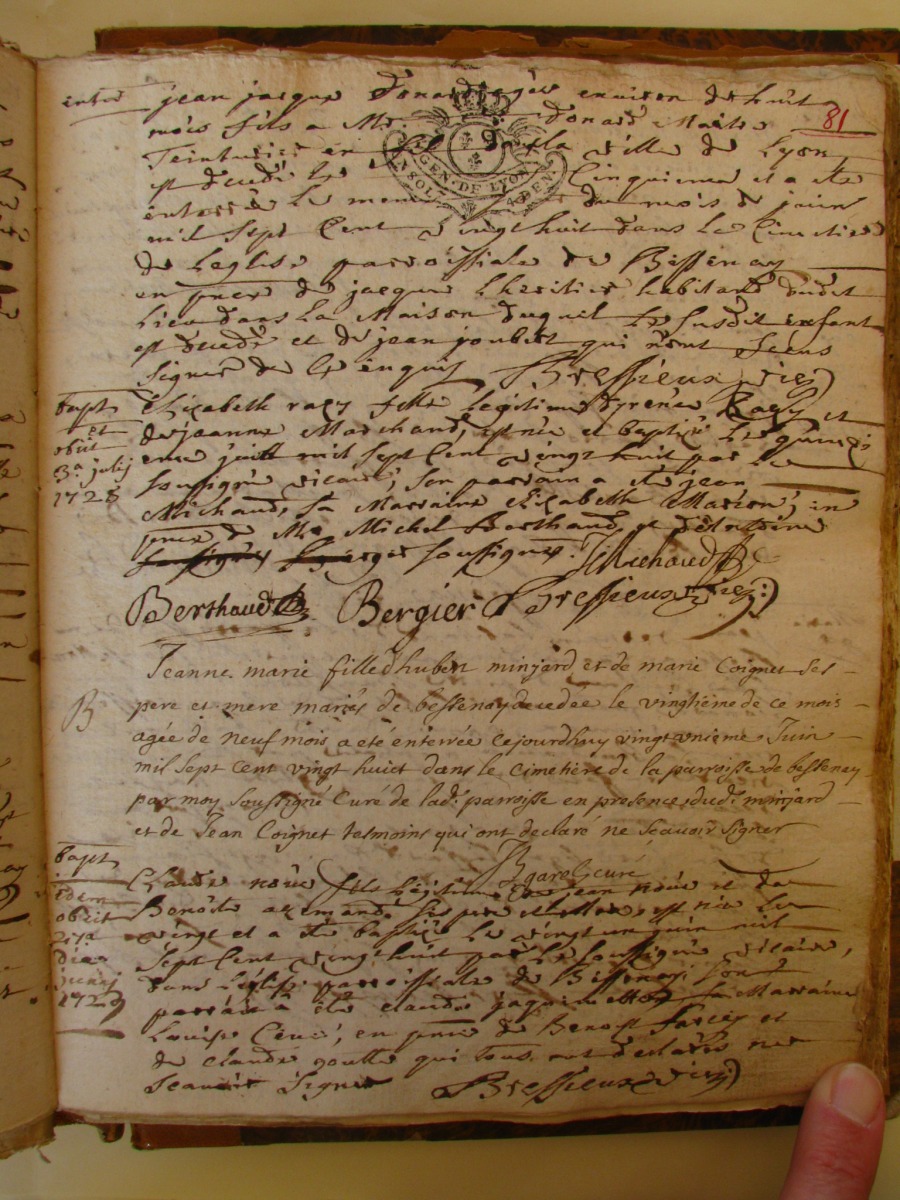 81
enter
jean jacque Donard agée environ de huit
mois fils a Mr Donard Maitre
Teinturier en de la ville de Lyon
GEN. DE LYON
est decedé le Cinquieme et a été
enterré le meme du mois de juin
mil sept Cent vingt huit dans le Cimetiere
de Leglise parroissiale de Bessenay
en pnce de jacque Lheritier habitant dudit
Lieu dans la Maison duquel le susdit enfant
est decedé et de jean joubert qui n'ont sceus
signer de ce enquis Bressieux vic
bapt
et
obiit
3a julij
1728
Elizabeth ragy fille Legitime d'renée Ragy et
de jeanne Marchand, est née et baptisée le
juin mil sept Cent vingt huit par le
soussigné vicaire, son parrain a été jean
Michaud, sa Marraine Elizabeth ; en
pnce de Mre Michel Berthaud, et d'Antoine
Bergier soussignés. JMichaud
Berthaud Bergier Bressieux vic
B
Jeanne marie fille d'hubert minjard et de marie Coignet ses
pere et mere mariés de bessenay decedée le vingtiéme de ce mois
agée de neuf mois a eté enterrée cejourdhuy vingt unieme Juin
mil sept cent vingt huict dans le cimetiére de la parroisse de bessenay
par moy soussigné Curé de lad. parroisse en presence dud. minjard
et de Jean Coignet tesmoins qui ont declaré ne sçavoir signer
garel curé
bapt
idem
obiit
27a
die
junij
1729
Claude fils Legitime de jean et de
Benoîte ses pere et Mere, est née le
vingt et a été baptisé le vingt un juin mil
sept Cent vingt huit par le soussigné vicaire,
dans L'église parroissiale de Bessenay son
parrain a été claude jaquemetton sa Marraine
Louise , en pnce de Benoit et
de claude goutte qui tous ont declarés ne
scavoir signer Bressieux vic